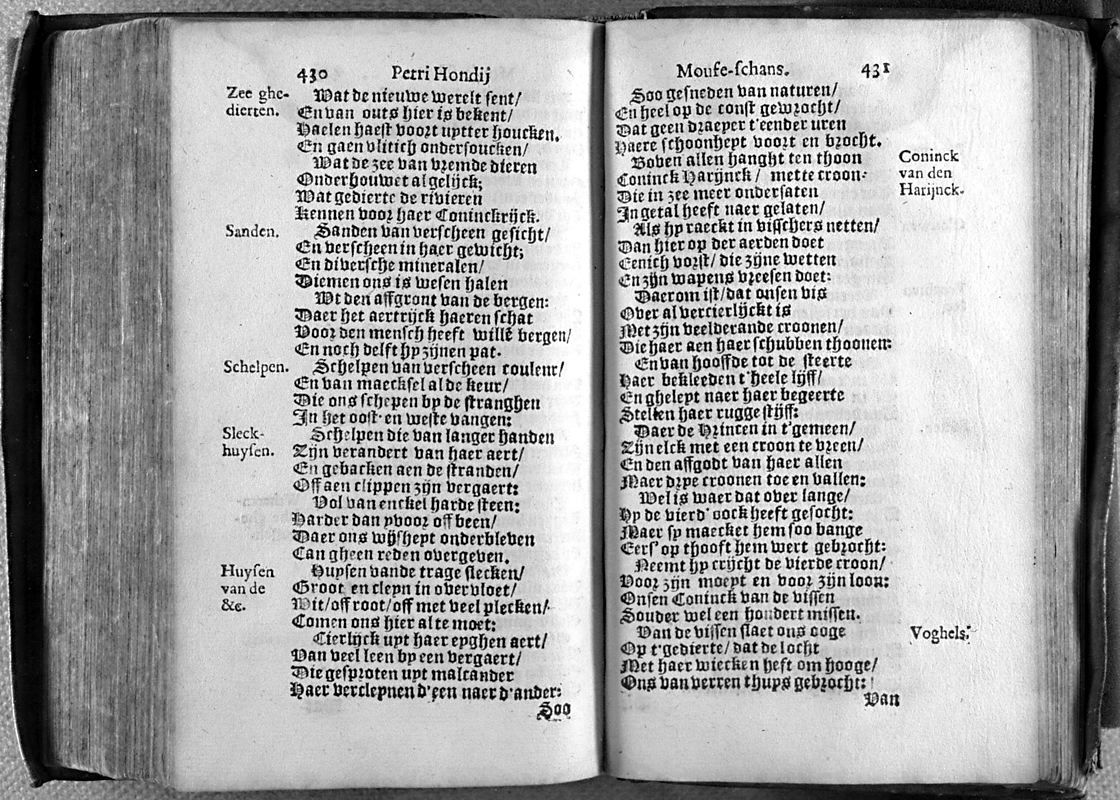 430 Petri Hondij
Zee ghe-
dierten.
Wat de nieuwe werelt sent/
En van outs hier is bekent/
Haelen haest voort uytter houcken.
En gaen vlitich ondersoucken/
Wat de zee van vremde dieren
Onderhouwet al gelijck;
Wat gedierte de rivieren
Kennen voor haer Coninckrijck.
Sanden.
Sanden van verscheen gesicht/
En verscheen in haer gewicht;
En diversche mineralen/
Diemen ons is wesen halen
Wt den affgront van de bergen:
Daer het aertrijck haeren schat
Voor den mensch heeft willē bergen/
En noch delft hy zijnen pat.
Schelpen.
Schelpen van verscheen couleur/
En van maecksel al de keur/
Die ons schepen by de stranghen
In het oost en weste vangen:
Sleck-
huysen.
Schelpen die van langer handen
Zijn verandert van haer aert/
En gebacken aen de stranden/
Off aen clippen zijn vergaert:
Vol van enckel harde steen:
Harder dan yvoor off been/
Daer ons wijshept onderbleven
Can gheen reden overgeven.
Huysen
van de
&c.
Huysen vande trage slecken/
Groot en cleyn in overvloet/
Wit/off root/off met veel plecken/
Comen ons hier al te moet:
Cierlijck uyt haer eyghen aert/
Van veel leen by een vergaert/
Die gesproten uyt malcander
Haer vercleynen d'een naer d'ander:
Soo
Moufe-schans. 431
Soo gesneden van naturen/
En heel op de const gewrocht/
Dat geen draeper t'eender uren
Haere schoonheyt voort en brocht.
Coninck
van den
Harijnck.
Boven allen hanght ten thoon
Coninck Harijnck/ mette croon:
Die in zee meer ondersaten
In getal heeft naer gelaten/
Als hy raeckt in visschers netten/
Dan hier op der aerden doet
Eenich vorst/ die zijne wetten
En zijn wapens vreesen doet:
Daerom ist/dat onsen vis
Over al vercierlijckt is
Met zijn veelderande croonen/
Die haer aen haer schubben thoonen:
En van hooffde tot de steerte
Haer bekleeden t'heele lijff/
En ghelept naer haer begeerte
Stellen haer rugge stijff:
Daer de Princen in t'gemeen/
Zijn elck met een croon te vreen/
En den affgodt van haer allen
Maer drye croonen toe en vallen:
Wel is waer dat over lange/
Hy de vierd' oock heeft gesocht:
Maer sy maecket hem soo bange
Eers' op thooft hem wert gebrocht:
Neemt hy crijcht de vierde croon/
Voor zijn moeyt en voor zijn loon:
Onsen Coninck van de vissen
Souder wel een hondert missen.
Voghels.
Van de vissen slaet ons ooge
Op t'gedierte/ dat de locht
Met haer wiecken heft om hooge/
Ons van verren thuys gebrocht:
Van